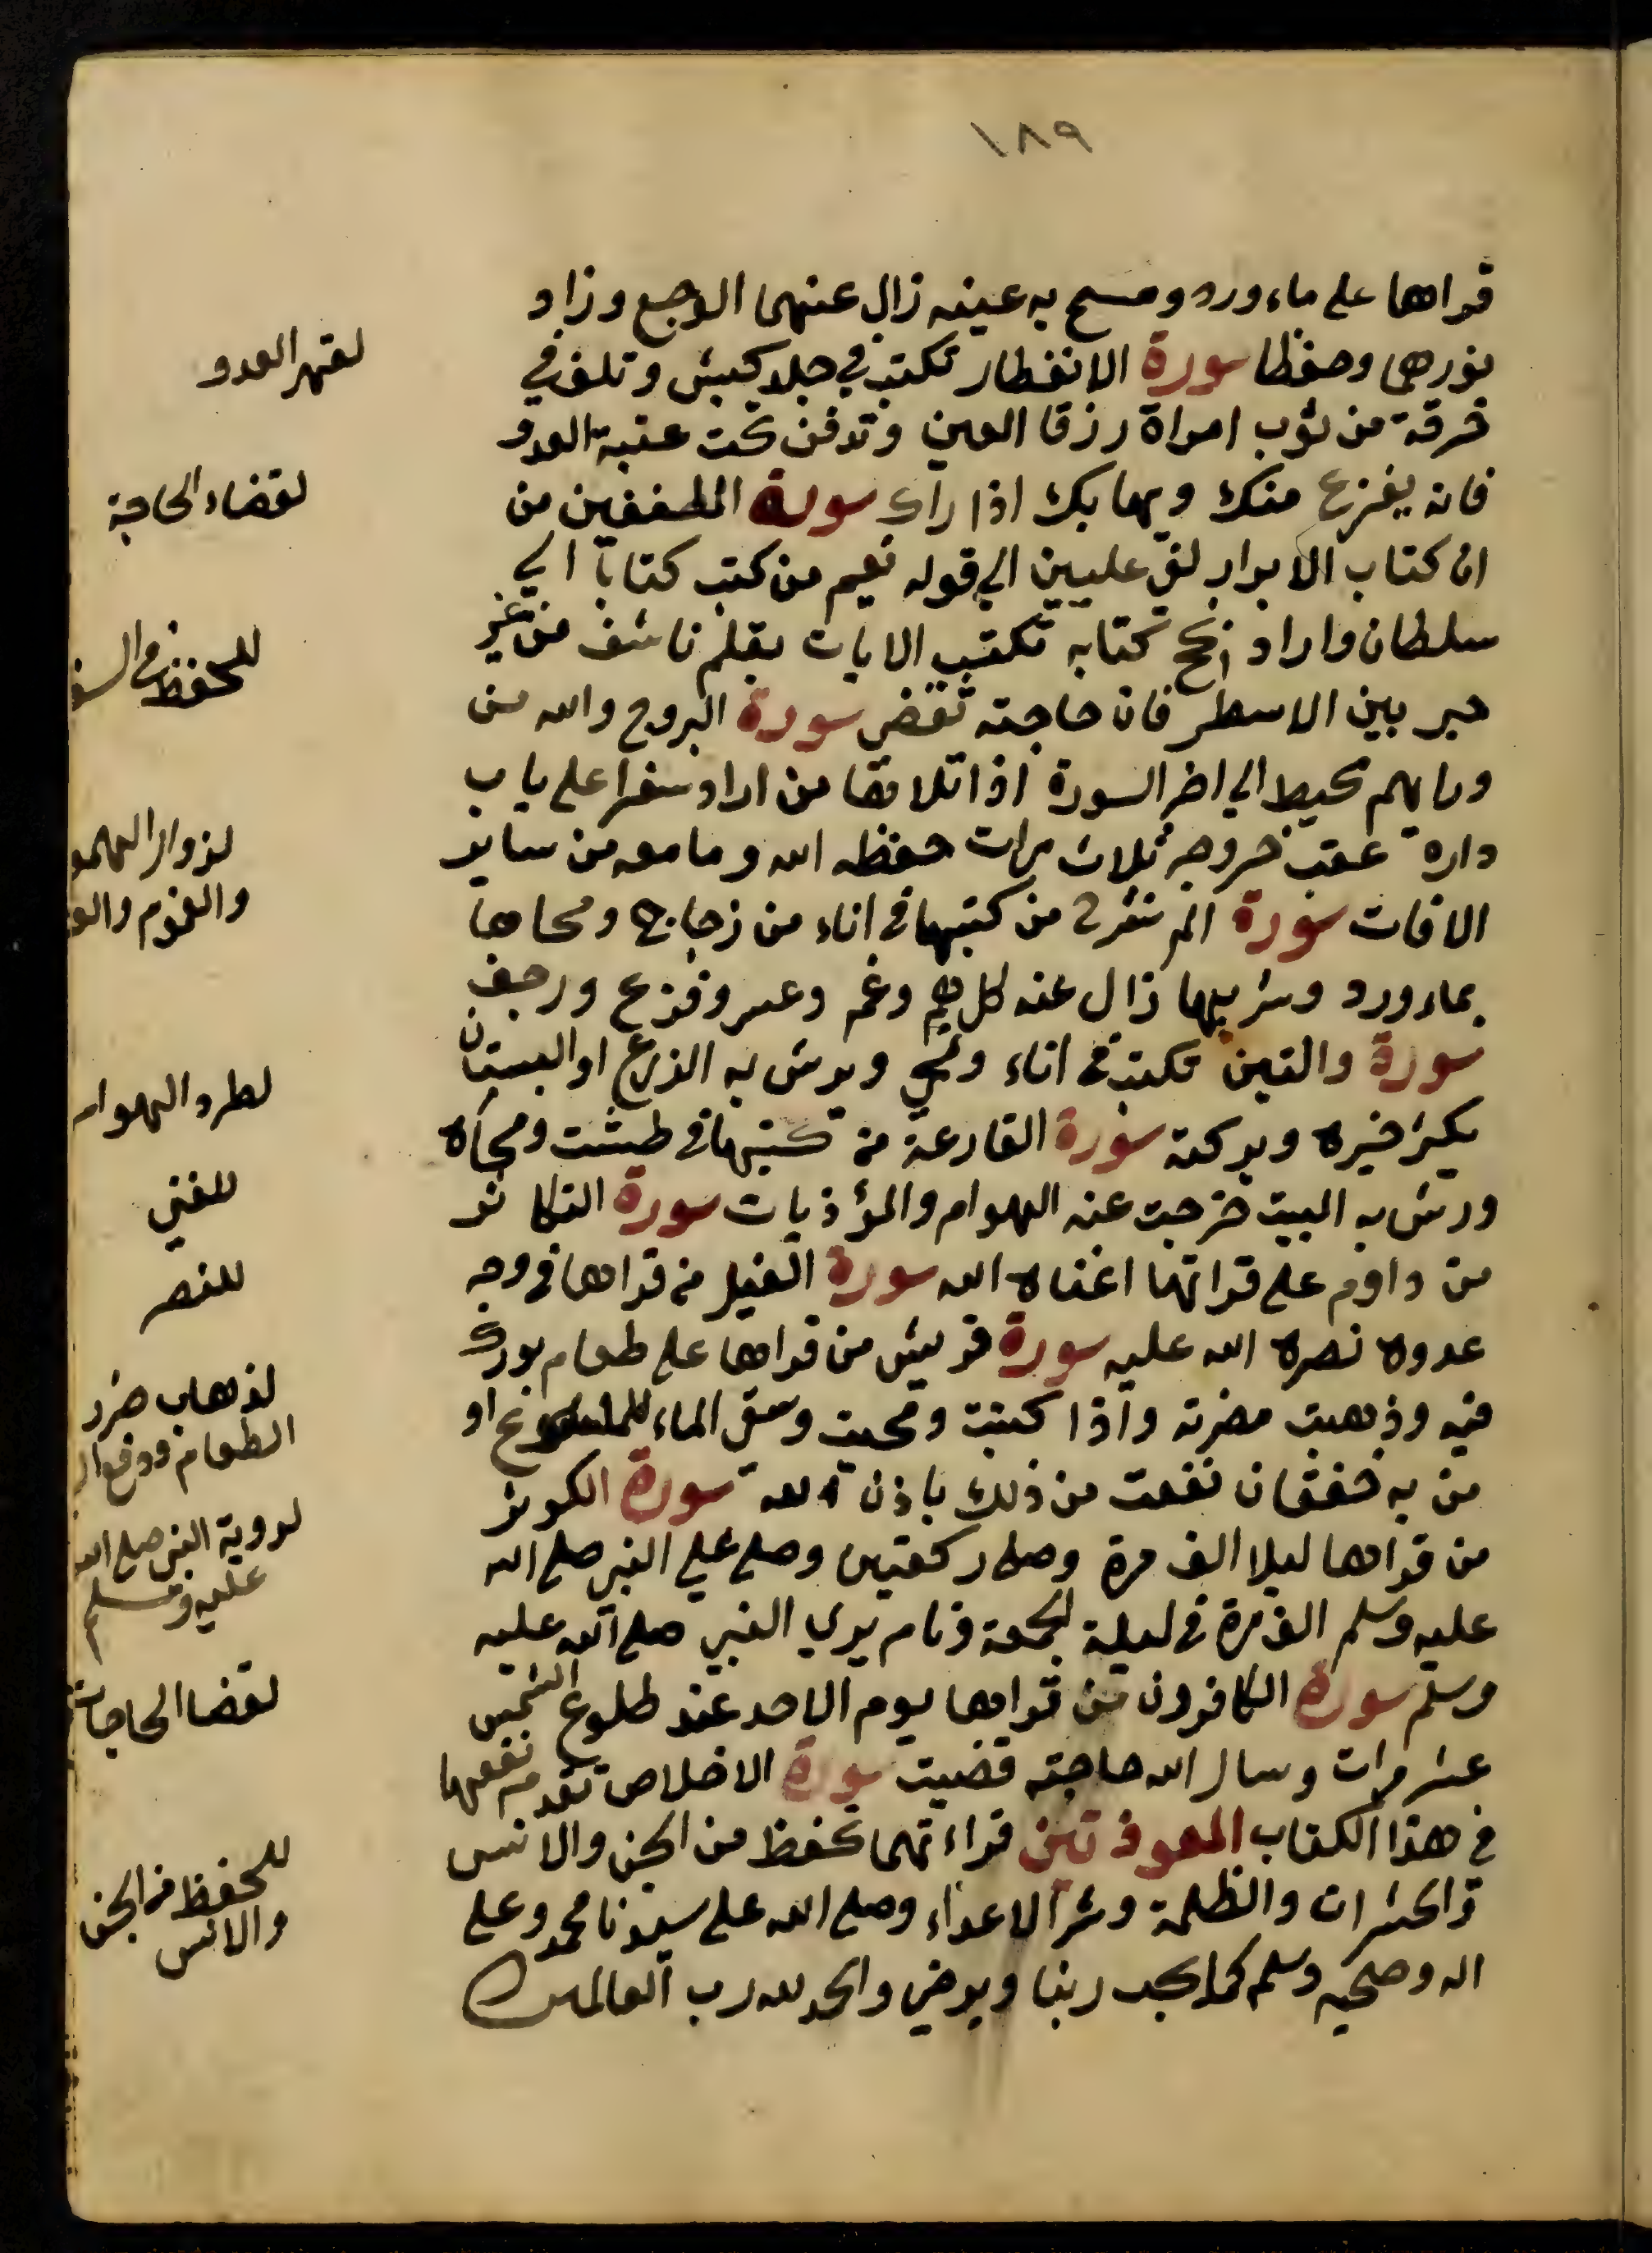 ١٨٩
قراها على ماء ورد ومسح به عينه زال عنهما الوجع وزاد
نورهما وحفظا سورة الانفطار تكتب في جلد كبش وتلف في
خرقة من ثوب امراة رزقا العين وتدفن تحت عتبة العدو
فانه يفزع منك ويهابك اذا راك سورة المطففين من
ان كتاب الابرار لفي عليين الي قوله نعيم من كتب كتابا الي
سلطان واراد نجح كتابه تكتب الايات بقلم ناشف من غير
حبر بين الاسطر فان حاجته تقضي سورة البروج والله من
ورايهم محيط الي اخر السورة اذا تلاها من اراد سفرا على باب
داره عقب خروجه ثلاث مرات حفظه الله وما معه من ساير
الافات سورة الم نشرح من كتبها في اناء من زجاج ومحاها
بماء ورد وشربها زال عنه كل هم وغم وعسر وفزع ورجف
سورة والتين تكتب في اناء وتمحي ويرش به الزرع او البستان
يكثر خيره وبركته سورة القارعة من كتبها في طشت ومحاه
ورش به البيت خرجت عنه الهوام والمؤذيات سورة التكاثر
من داوم على قراتها اغناه الله سورة الفيل من قراها في وجه
عدوه نصره الله عليه سورة قريش من قراها على طعام بورك
فيه وذهبت مضرته واذا كتبت ومحيت وسقى الماء للملسوع او
من به خفقان نفعت من ذلك باذن الله سورة الكوثر
من قراها ليلا الف مرة وصلى ركعتين وصلى على النبي صلى الله
عليه وسلم الف مرة في ليلة الجمعة ونام يري النبي صلى الله عليه
وسلم سورة الكافرون من قراها يوم الاحد عند طلوع الشمس
عشر مرات وسال الله حاجته قضيت سورة الاخلاص تقدم نفعها
في هذا الكتاب المعوذتين قراءتهما تحفظ من الجن والانس
والحشرات والظلمة وشر الاعداء وصلى الله على سيدنا محمد وعلى
اله وصحبه وسلم كما يحب ربنا ويرضي والحمد لله رب العالمين
لقهر العدو
لقضاء الحاجة
للحفظ في السفر
لزوال الهم
والغم
لطرد الهوام
للغني
للنصر
لذهاب ضرر
الطعام ودفع
لروية النبي صلى الله
عليه وسلم
لقضا الحاجات
للحفظ من الجن
والانس